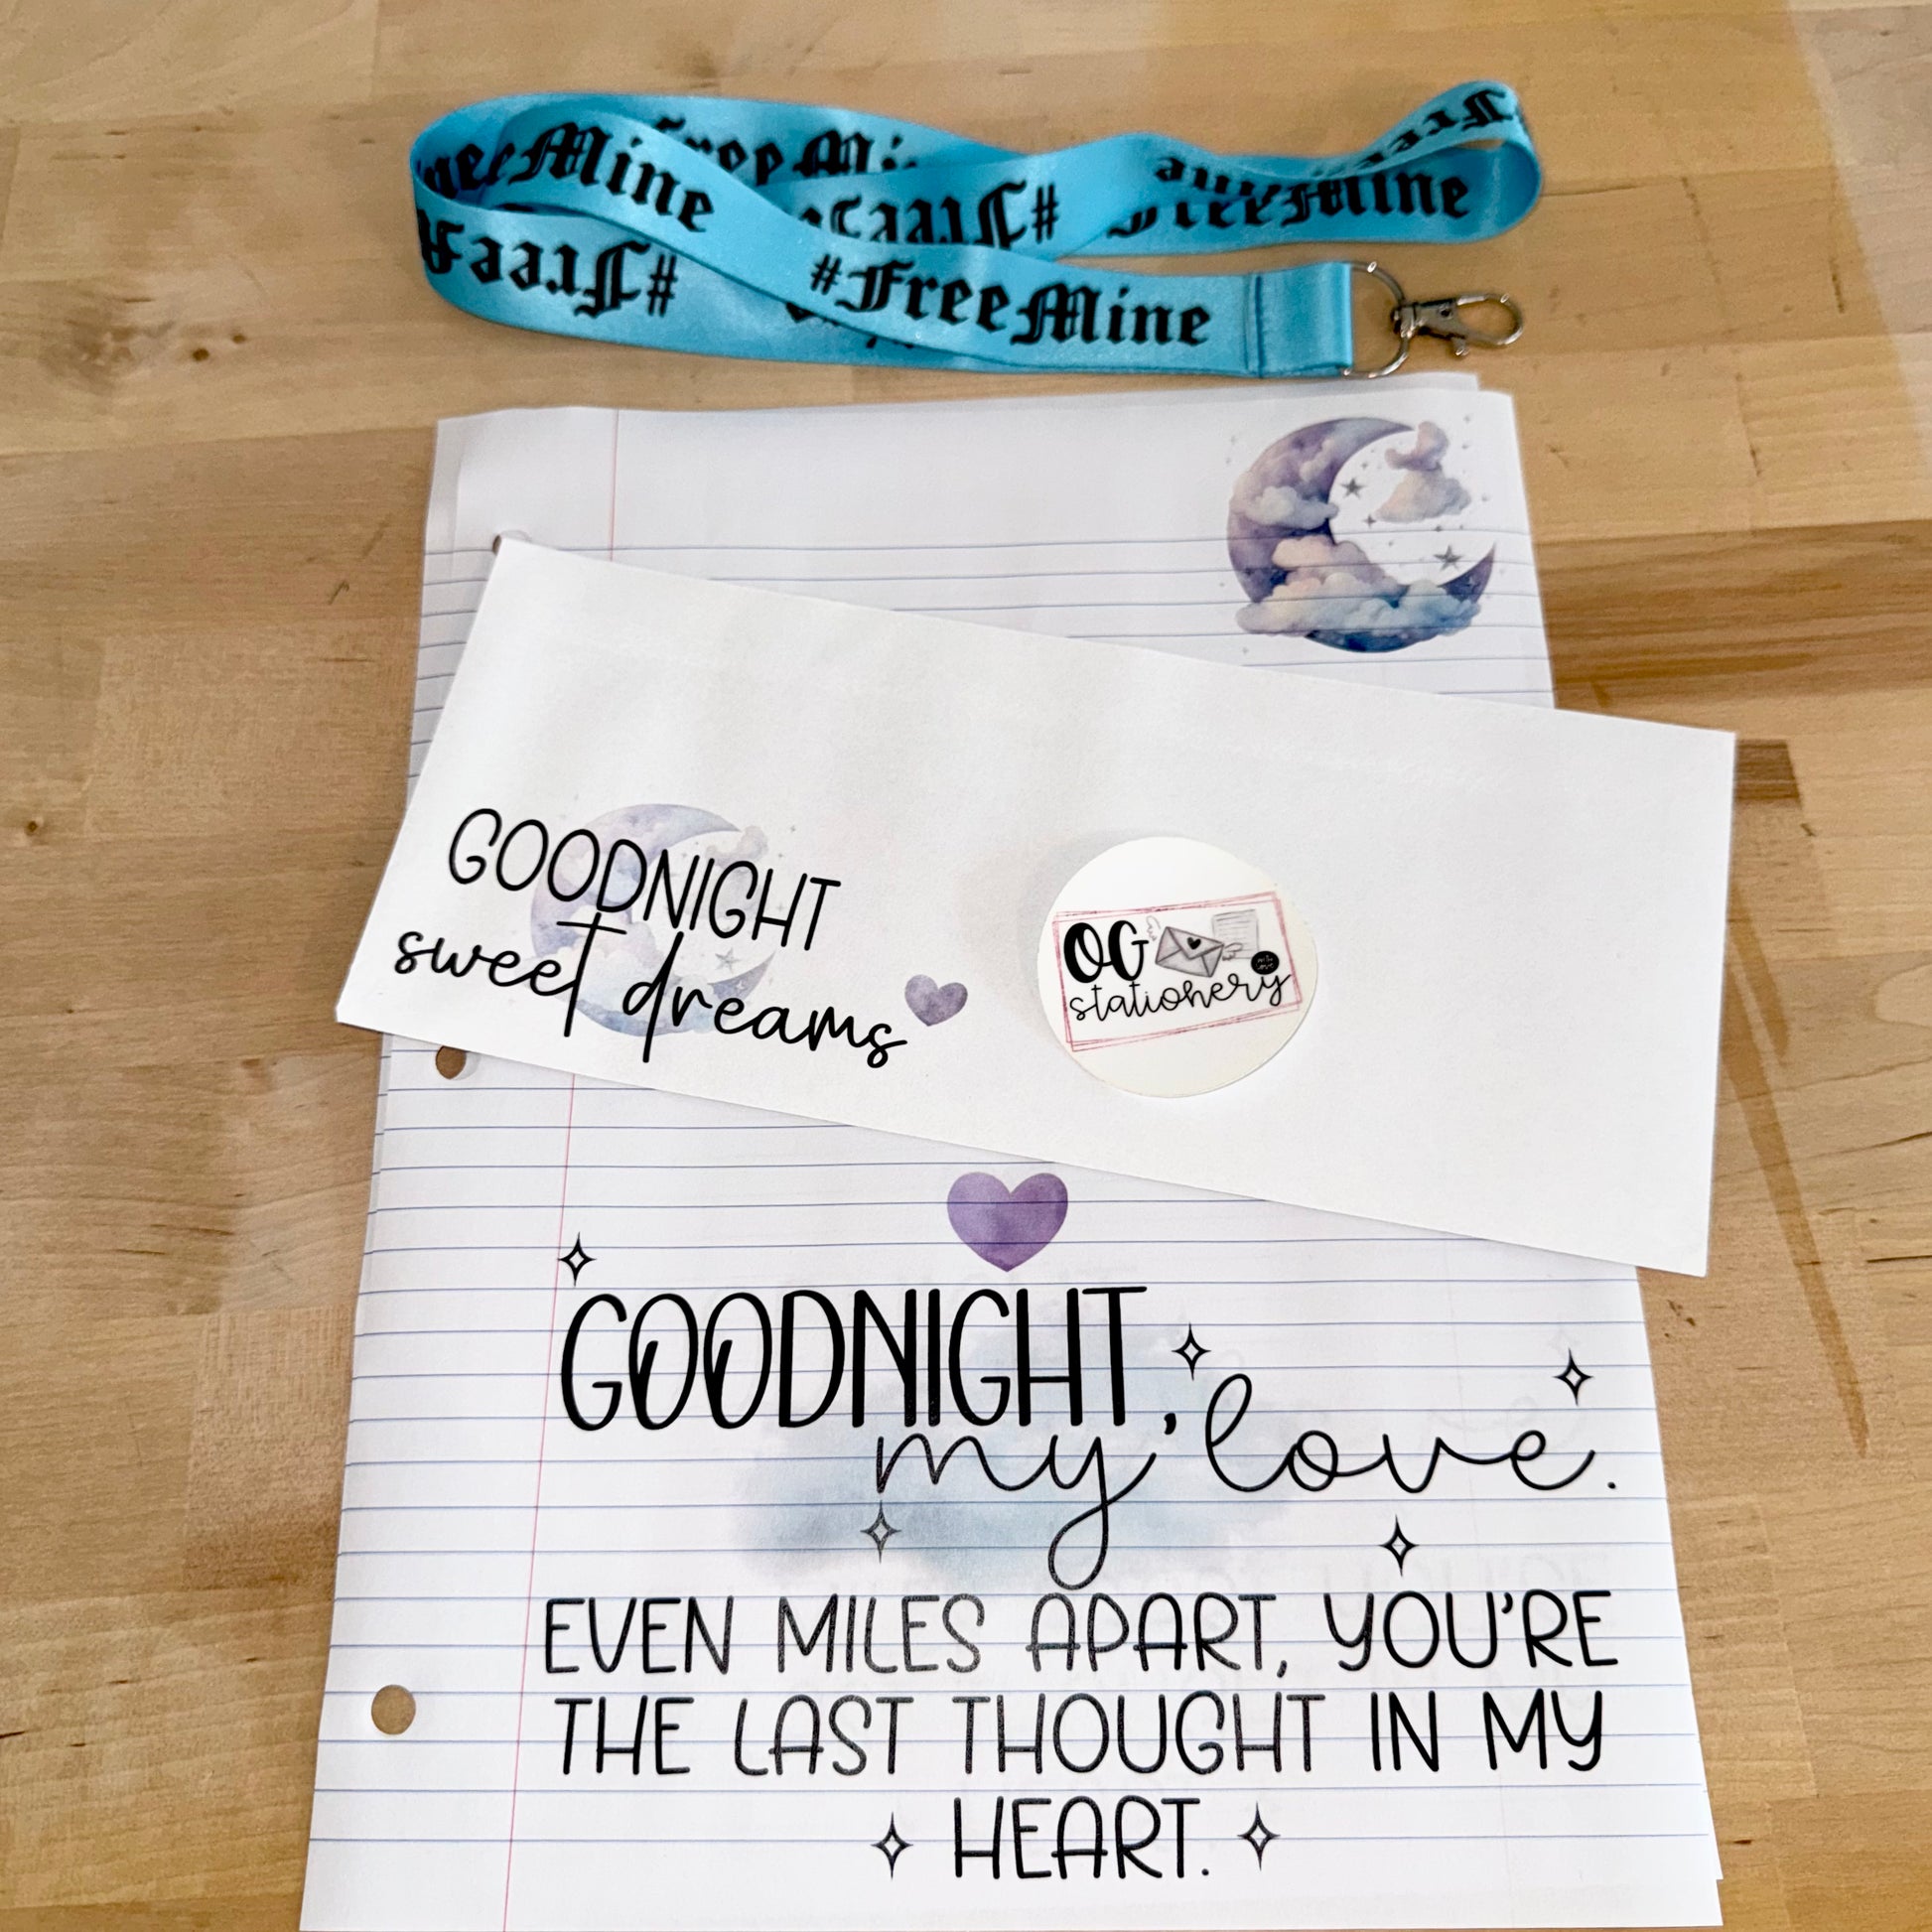 #FreeMine
#FreeMine
GOODNIGHT
sweet dreams
OG
stationery
GOODNIGHT,
my love.
EVEN MILES APART, YOU'RE
THE LAST THOUGHT IN MY
HEART.